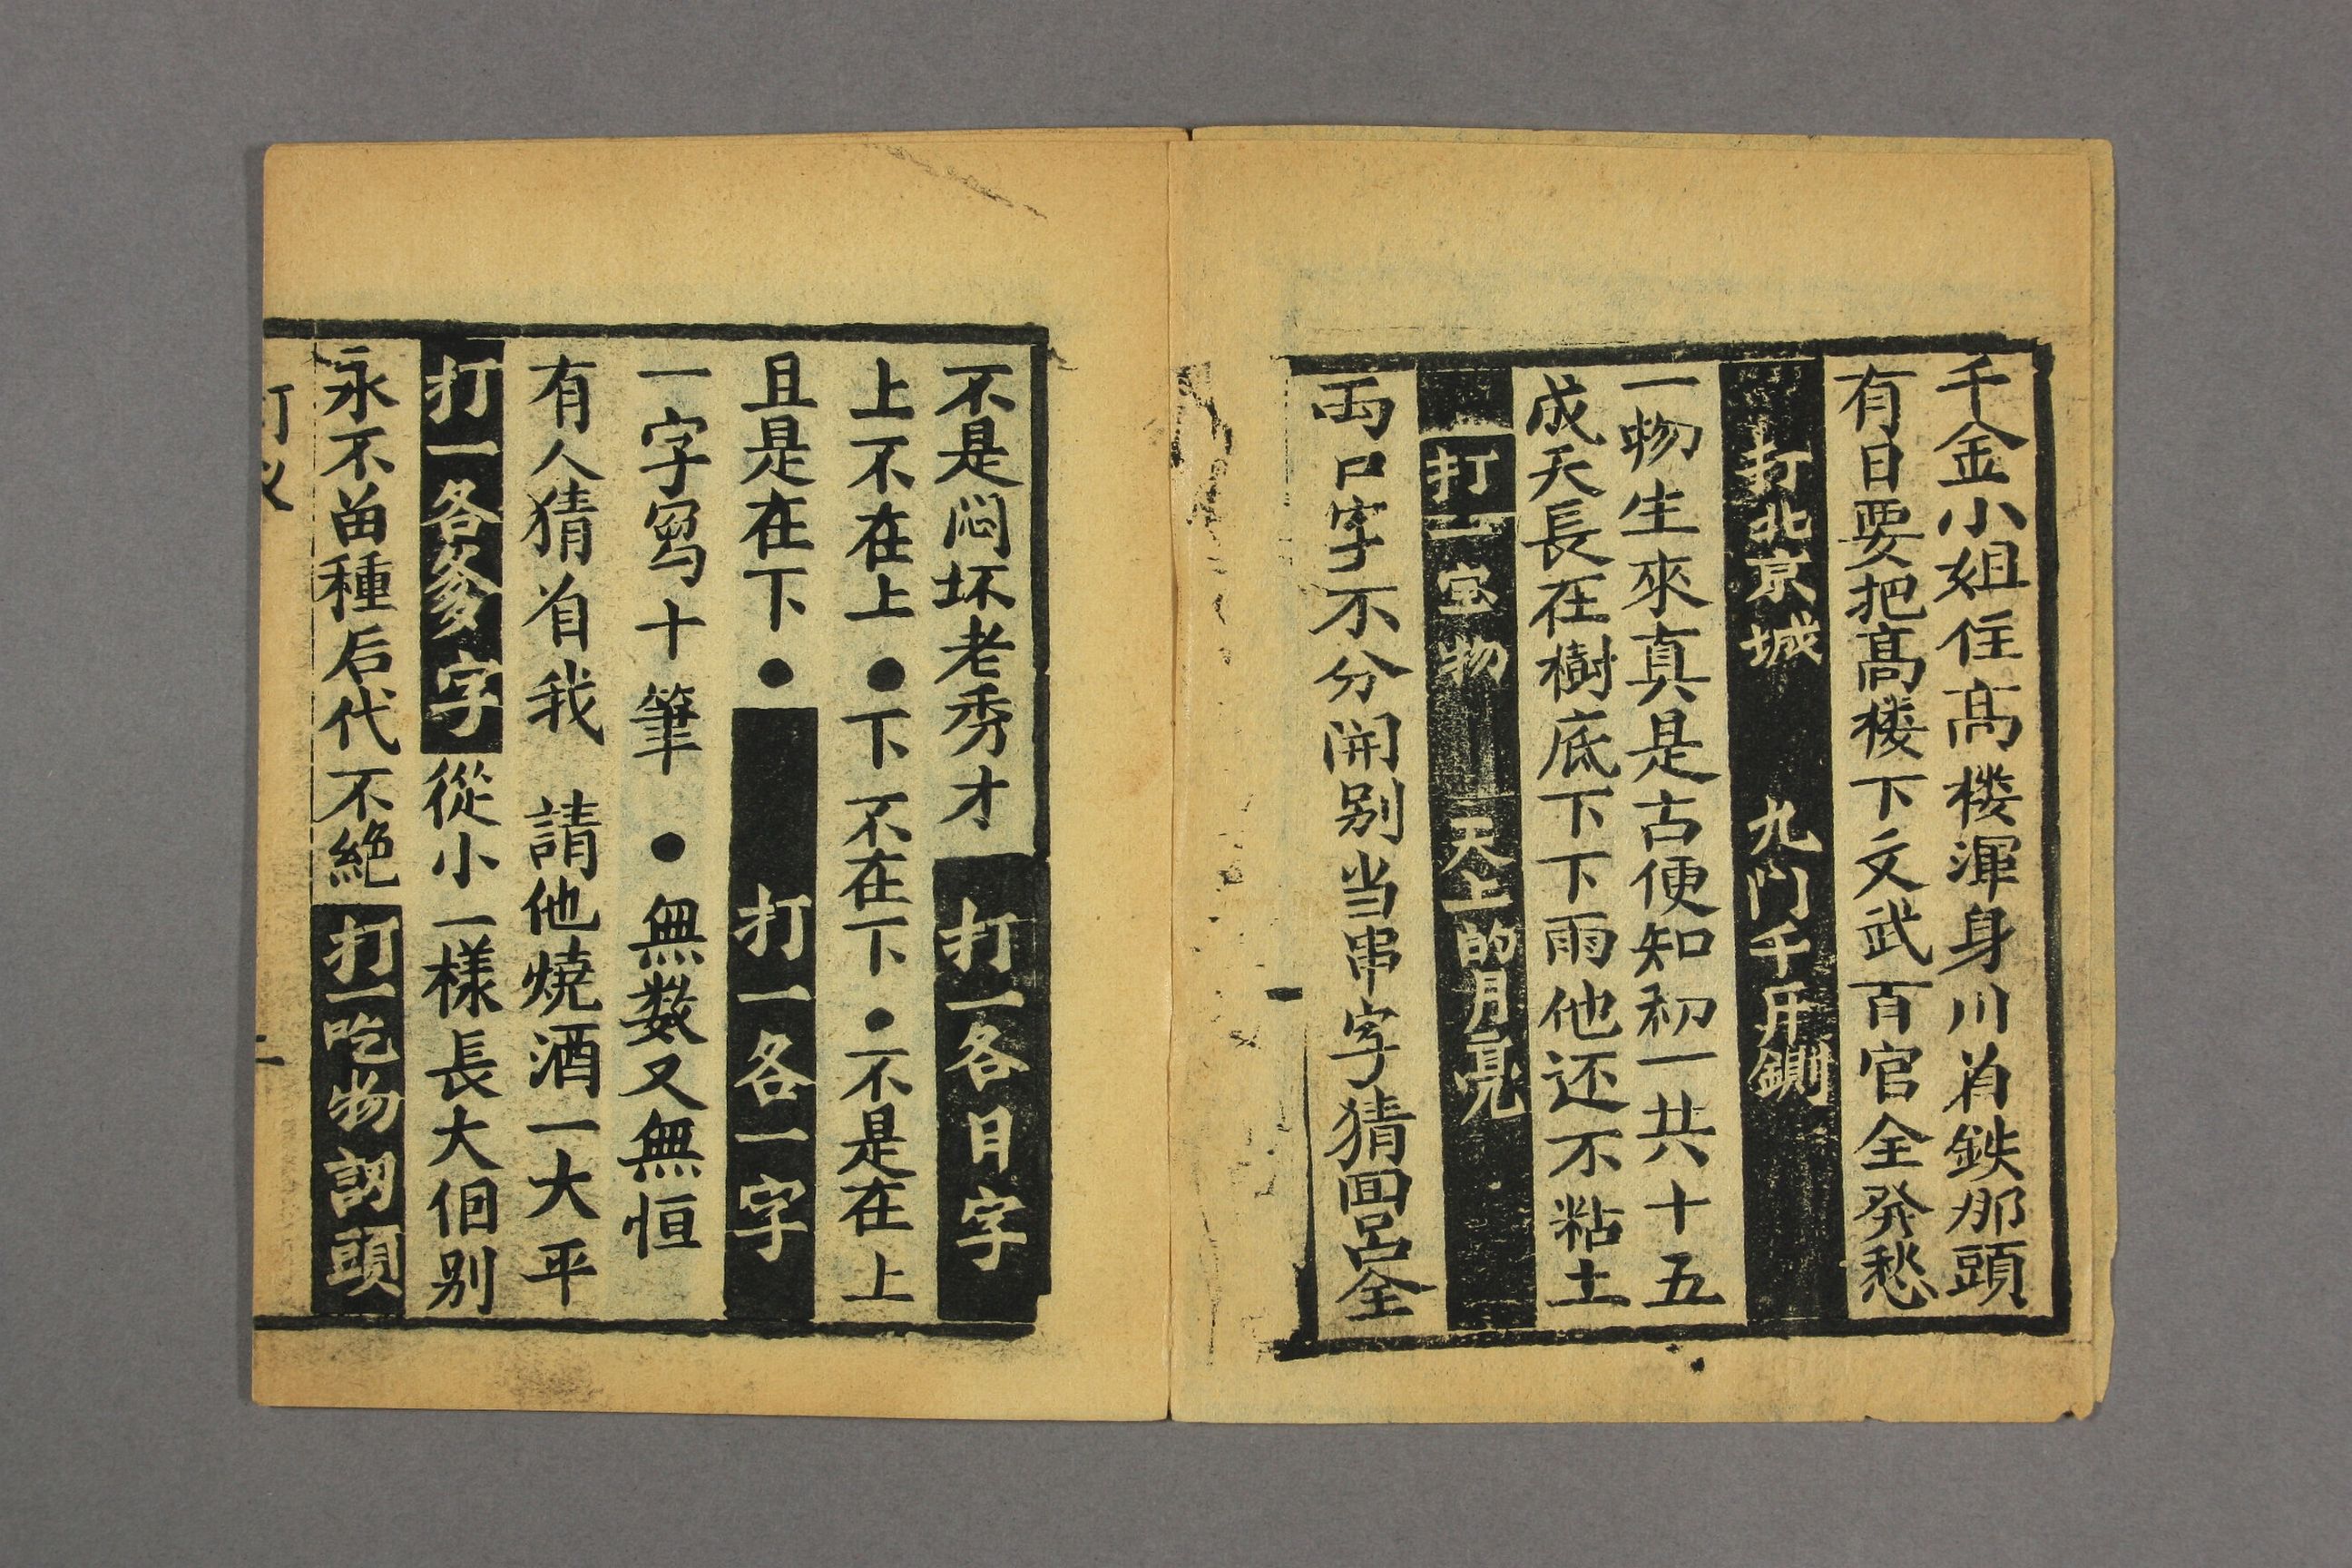 千金小姐住高楼渾身川着鉄那頭
有日要把高楼下文武百官全発愁
打北京城 九门千斤鎖
一物生來真是古便知初一共十五
成天長在樹底下下雨他还不粘土
打一宝物 天上的月亮
両口字不分開别当串字猜回呂全
不是闷坏老秀才 打一各日字
上不在上●下不在下●不是在上
且是在下● 打一各一字
一字写十筆●無数又無恒
有人猜着我 請他燒酒一大平
打一各爹字 從小一樣長大佪别
永不苗種后代不絶 打一吃物調頭